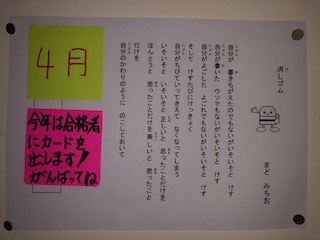 消しゴム
まど みちお
自分が 書きちがえたのでもないがいそいそと けす
自分が書いた ウソでもないがいそいそと けす
自分がよごした よごれでもないがいそいそと けす
そして けすたびにけっきょく
自分がちびていってきえて なくなってしまう
いそいそと いそいそと 正しいと 思ったこと
ほんとうと 思ったことだけを美しいと 思ったこと
だけを
自分のかわりのように のこしておいて
4月
今年は合格者
にカードを
出します!
がんばってね